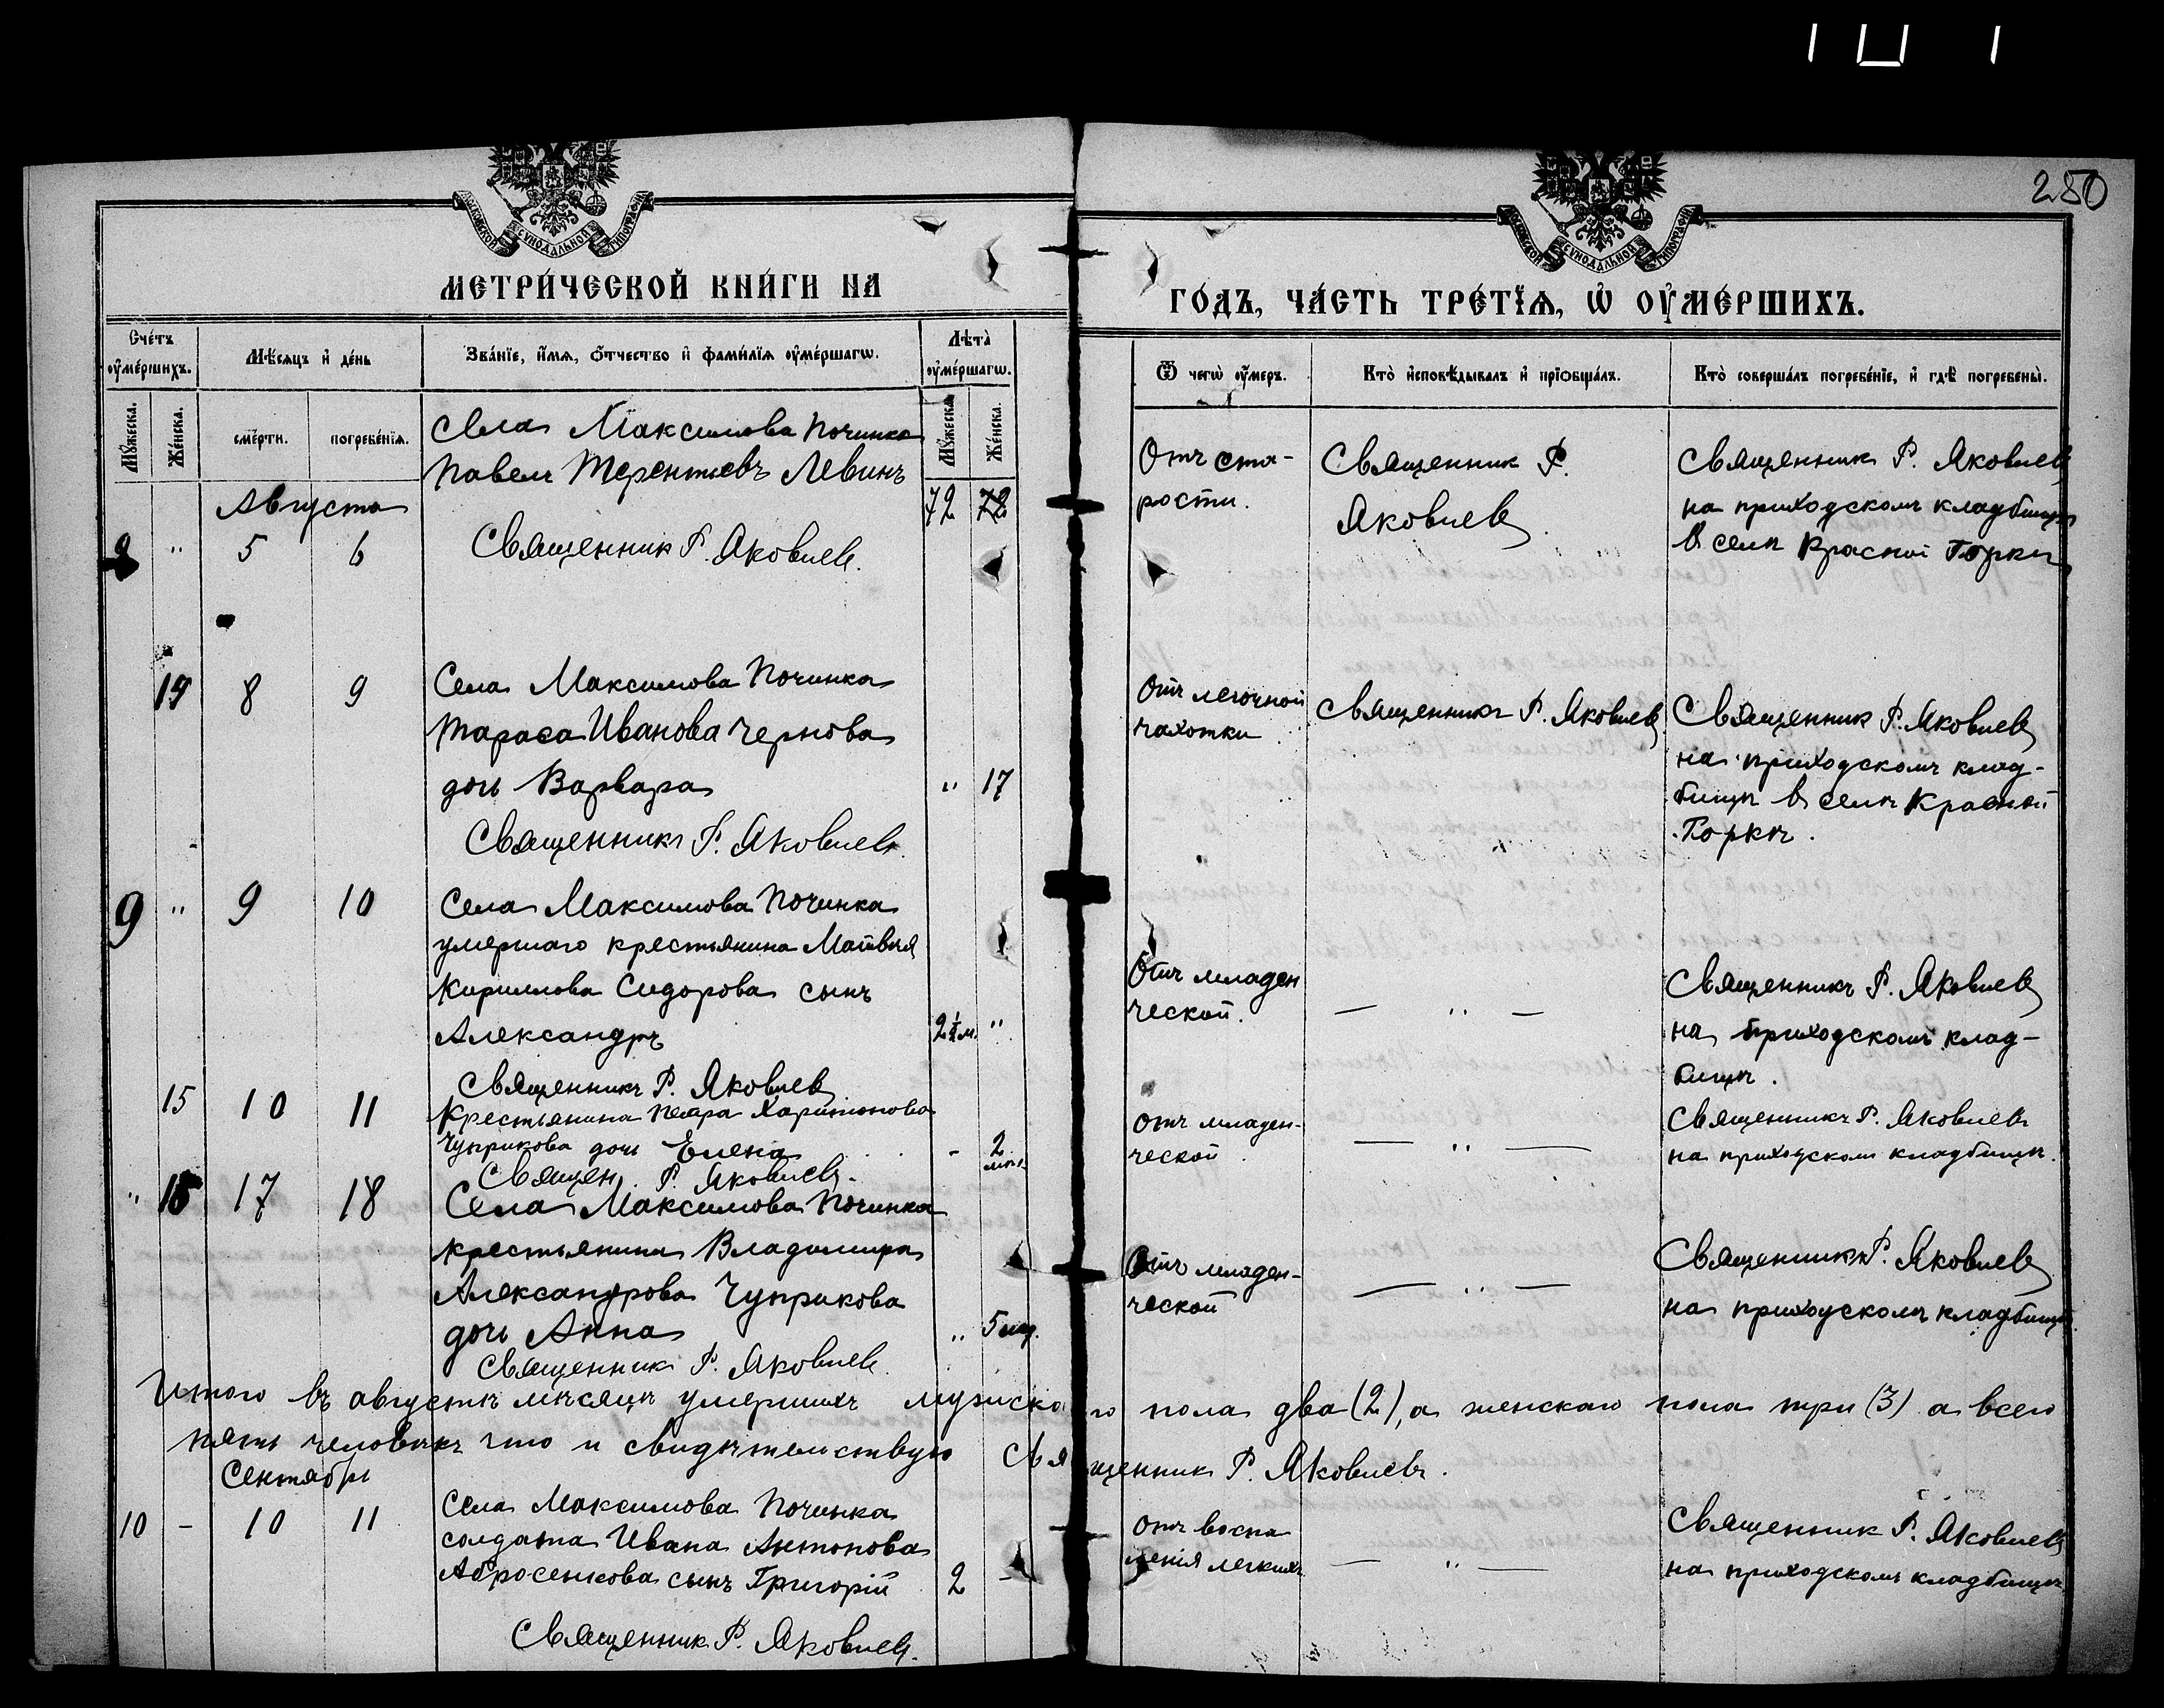 280
МОСКОВСКОЙ СѴНОДАЛЬНОЙ ТИПОГРАФІИ
МОСКОВСКОЙ СѴНОДАЛЬНОЙ ТИПОГРАФІИ
МЕТРИ́ЧЕСКОЙ КНИ́ГИ НА
ГО́ДЪ, ЧА́СТЬ ТРЕ́ТЇѦ, Ѡ҆ ОУ҆МЕ́РШИХЪ.
Сче́тъ оу҆ме́ршихъ.
Мѣ́сѧцъ и҆ де́нь
Зва́нїе, и҆́мѧ, ѻ҆́тчество и҆ фами́лїѧ оу҆ме́ршагѡ.
Лѣ́та оу҆ме́ршагѡ.
Ѿ чегѡ̀ оу҆́меръ.
Кто̀ и҆сповѣ́дывалъ и҆ прїѡбща́лъ.
Кто̀ соверша́лъ погребе́нїе, и҆ гдѣ̀ погребены̀.
Мꙋ́жеска.
Же́нска.
сме́рти.
погребе́нїѧ.
Мꙋ́жеска.
Же́нска.
Августа
" 5 6
Села Максимова Починка
Павелъ Терентьевъ Левинъ
72 72
Священник Р. Яковлев.
Отъ ста-
рости.
Священник Р.
Яковлев.
Священник Р. Яковлев
на приходскомъ кладбищѣ
в селѣ Красной Горкѣ
8 9
Села Максимова Починка
Тараса Иванова Чернова
дочь Варвара
" 17
Священникъ Р. Яковлевъ.
Отъ легочной
чахотки
Священникъ Р. Яковлев
Священник Р. Яковлев
на приходскомъ клад-
бищѣ в селѣ Красной
Горкѣ.
9 " 9 10
Села Максимова Починка
умершаго крестьянина Матвѣя
Кириллова Сидорова сынъ
Александръ
2½ м. "
Священникъ Р. Яковлев
Отъ младен
ческой.
— " —
Священникъ Р. Яковлев
на приходскомъ клад-
бищѣ.
15 10 11
Крестьянина Петра Харитонова
Чуприкова дочь Елена
- 2 мѣс.
Священ. Р. Яковлевъ.
отъ младен-
ческой
— " —
Священникъ Р. Яковлевъ
на приходскомъ кладбищѣ.
" 17 18
Села Максимова Починка
крестьянина Владимира
Александрова Чуприкова
дочь Анна
" 5
Священник Р. Яковлев.
Отъ младен-
ческой
— " —
Священникъ Р. Яковлев
на приходскомъ кладбищѣ
Итого въ августѣ мѣсяцѣ умершихъ мужскаго пола два (2), а женскаго пола три (3) а всего
пять человѣкъ что и свидѣтельствую Священник Р. Яковлевъ.
Сентябрь
10 - 10 11
Села Максимова Починка
солдата Ивана Антонова
Абросенкова сынъ Григорій
2 -
Священник Р. Яковлев.
отъ воспа
ленія легкихъ
— " —
Священник Р. Яковлев
на приходскомъ кладбищѣ